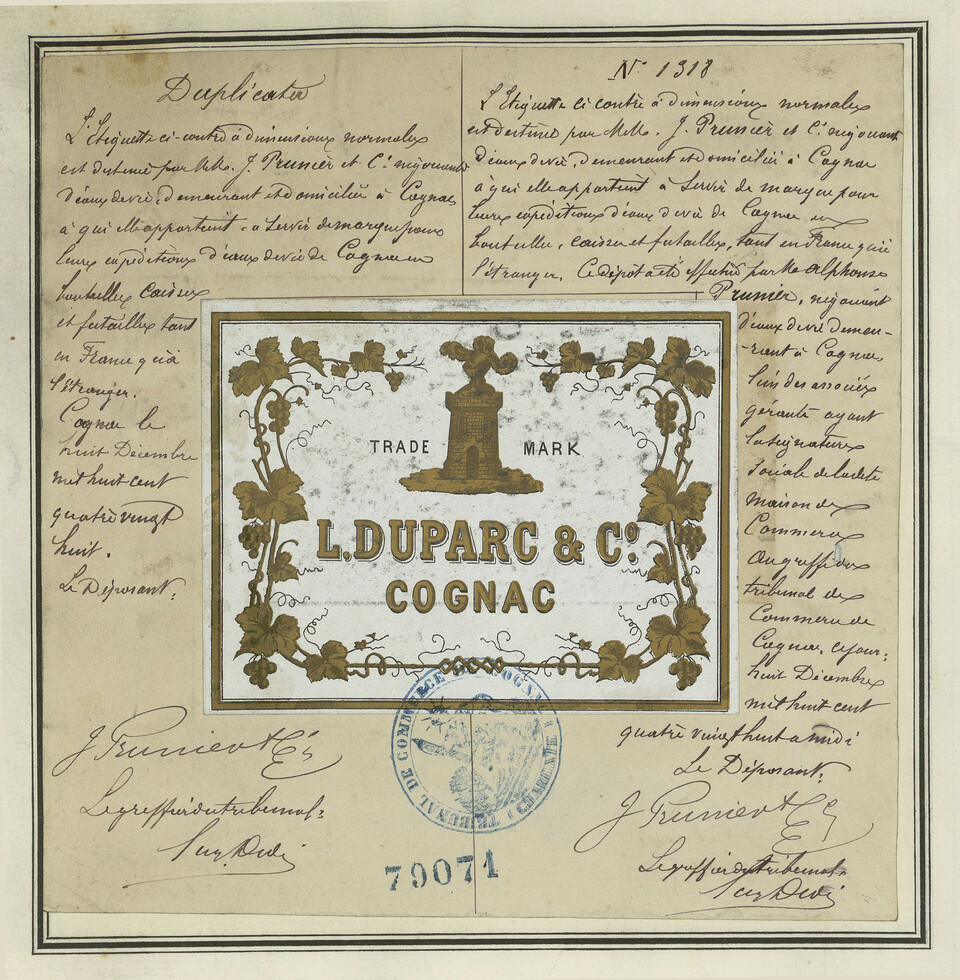 Duplicata
L'Etiquette ci-contre à dimensions normales
est destinée par M.M. J. Prunier et Cie négociants
d'eaux de vie, demeurant et domiciliés à Cognac
à qui elle appartient, à servir de marque pour
leurs expéditions d'eaux de vie de Cognac en
bouteilles caisses
et futailles tant
en France qu'à
l'étranger.
Cognac le
huit Décembre
mil huit cent
quatre vingt
huit.
Le Déposant:
J Prunier & Cie
Le greffier du tribunal:
No 1318
L'Etiquette ci contre à dimensions normales
est destinée par M.M. J. Prunier et Cie négociants
d'eaux de vie, demeurant et domiciliés à Cognac
à qui elle appartient à servir de marque pour
leurs expéditions d'eaux de vie de Cognac en
bouteilles, caisses et futailles, tant en France qu'à
l'étranger. Ce dépôt a été effectué par Mr Alphonse
Prunier, négociant
d'eaux de vie demeu-
-rant à Cognac
l'un des associés
gérants ayant
la signature
sociale de ladite
maison de
Commerce
au greffe du
tribunal de
Commerce de
Cognac, ce jour:
huit Décembre
mil huit cent
quatre vingt huit a midi
Le Déposant:
J Prunier & Cie
Le greffier du tribunal:
TRADE MARK
L. DUPARC & Co.
COGNAC
TRIBUNAL DE COMMERCE DE COGNAC (CHARENTE)
79071